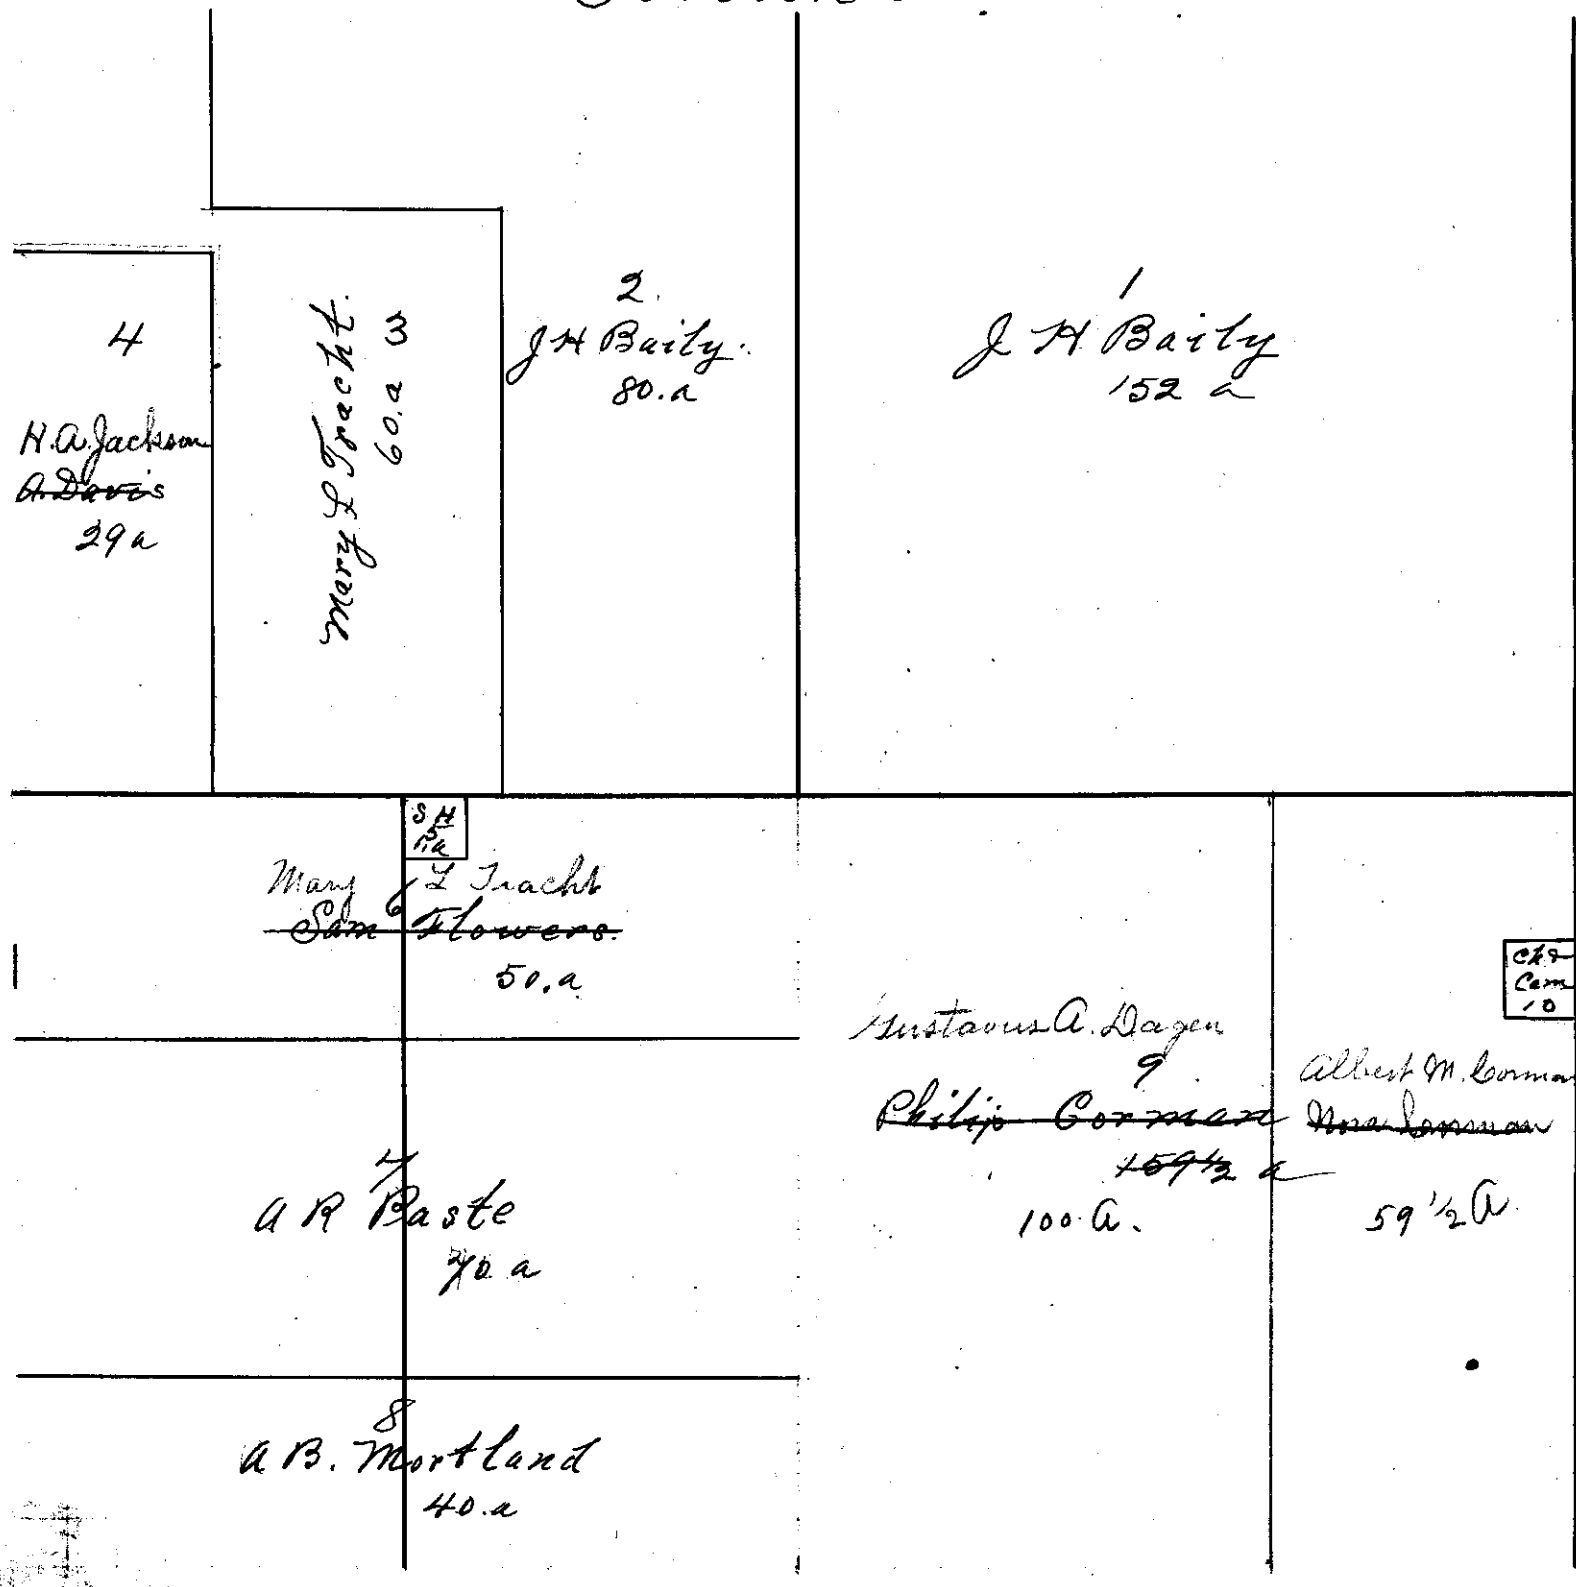 4
H.A. Jackson
A. Davis
29 a
Mary L Tracht.
3
60.a
2.
J H Baily.
80.a
1
J H Baily
152 a
S H
5
1.a
Mary L Tracht
6
Sam Flowers.
50.a
7
A R Baste
70 a
8
A B. Mortland
40.a
Gustavus A. Dagen
9
Philip Corman
159 1/2 a
100 A.
Ch &
Cem
10
Albert M. Corman
Nora Corman
59 1/2 A.